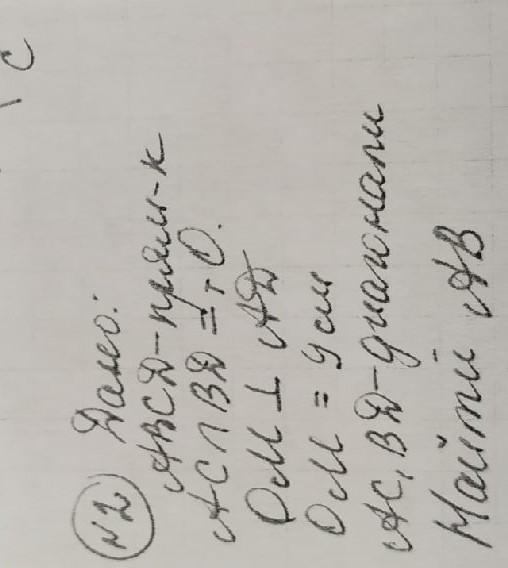 C
N2 Дано:
ABCD-прям-к
AC∩BD = т.О.
OM ⊥ AD
OM = 9 см
AC, BD-диагонали
Найти AB